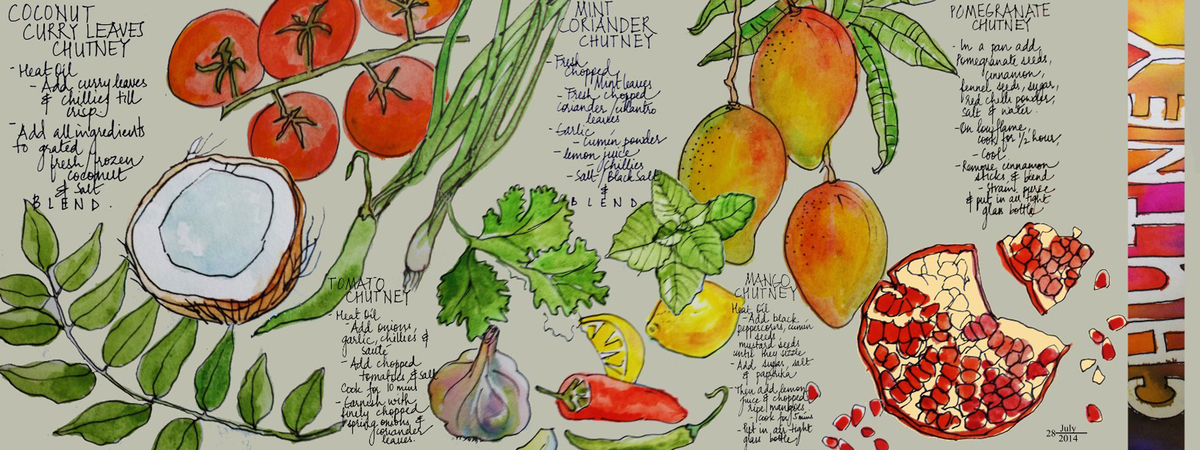 COCONUT
CURRY LEAVES
CHUTNEY
- Heat Oil
- Add curry leaves
& chillies till
crisp
- Add all ingredients
to grated
fresh/frozen
coconut
& salt
BLEND.
MINT
CORIANDER
CHUTNEY
- Fresh
chopped
Mint leaves
- Fresh chopped
coriander/cilantro
leaves
- Garlic
- cumin powder
- lemon juice
- chillies
- Salt/Black Salt
&
BLEND
POMEGRANATE
CHUTNEY
- In a pan add,
Pomegranate seeds,
cinnamon,
fennel seeds, sugar,
red chilli powder,
salt & water.
- On low flame,
cook for 1/2 hour,
- Cool
- Remove cinnamon
sticks & blend
- Strain puree
& put in air tight
glass bottle
TOMATO
CHUTNEY
- Heat Oil
- Add onions,
garlic, chillies &
sauté
- Add chopped
tomatoes & salt
Cook for 10 mins
- Garnish with
finely chopped
spring onions &
coriander
leaves.
MANGO
CHUTNEY
Heat Oil
- Add black
peppercorns, cumin
seeds,
mustard seeds
until they sizzle
- Add sugar, salt
& paprika
- Then add lemon
juice & chopped
ripe mangoes
- Cook for 5 mins
- Put in air tight
glass bottle
CHUTNEY
28 July
2014